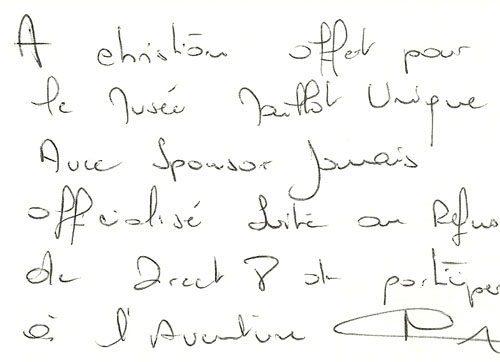 A christian offert pour
le Musée Maillot Unique
Avec Sponsor Jamais
officialisé Suite au Refus
de Direct 8 de participer
à l'Aventure